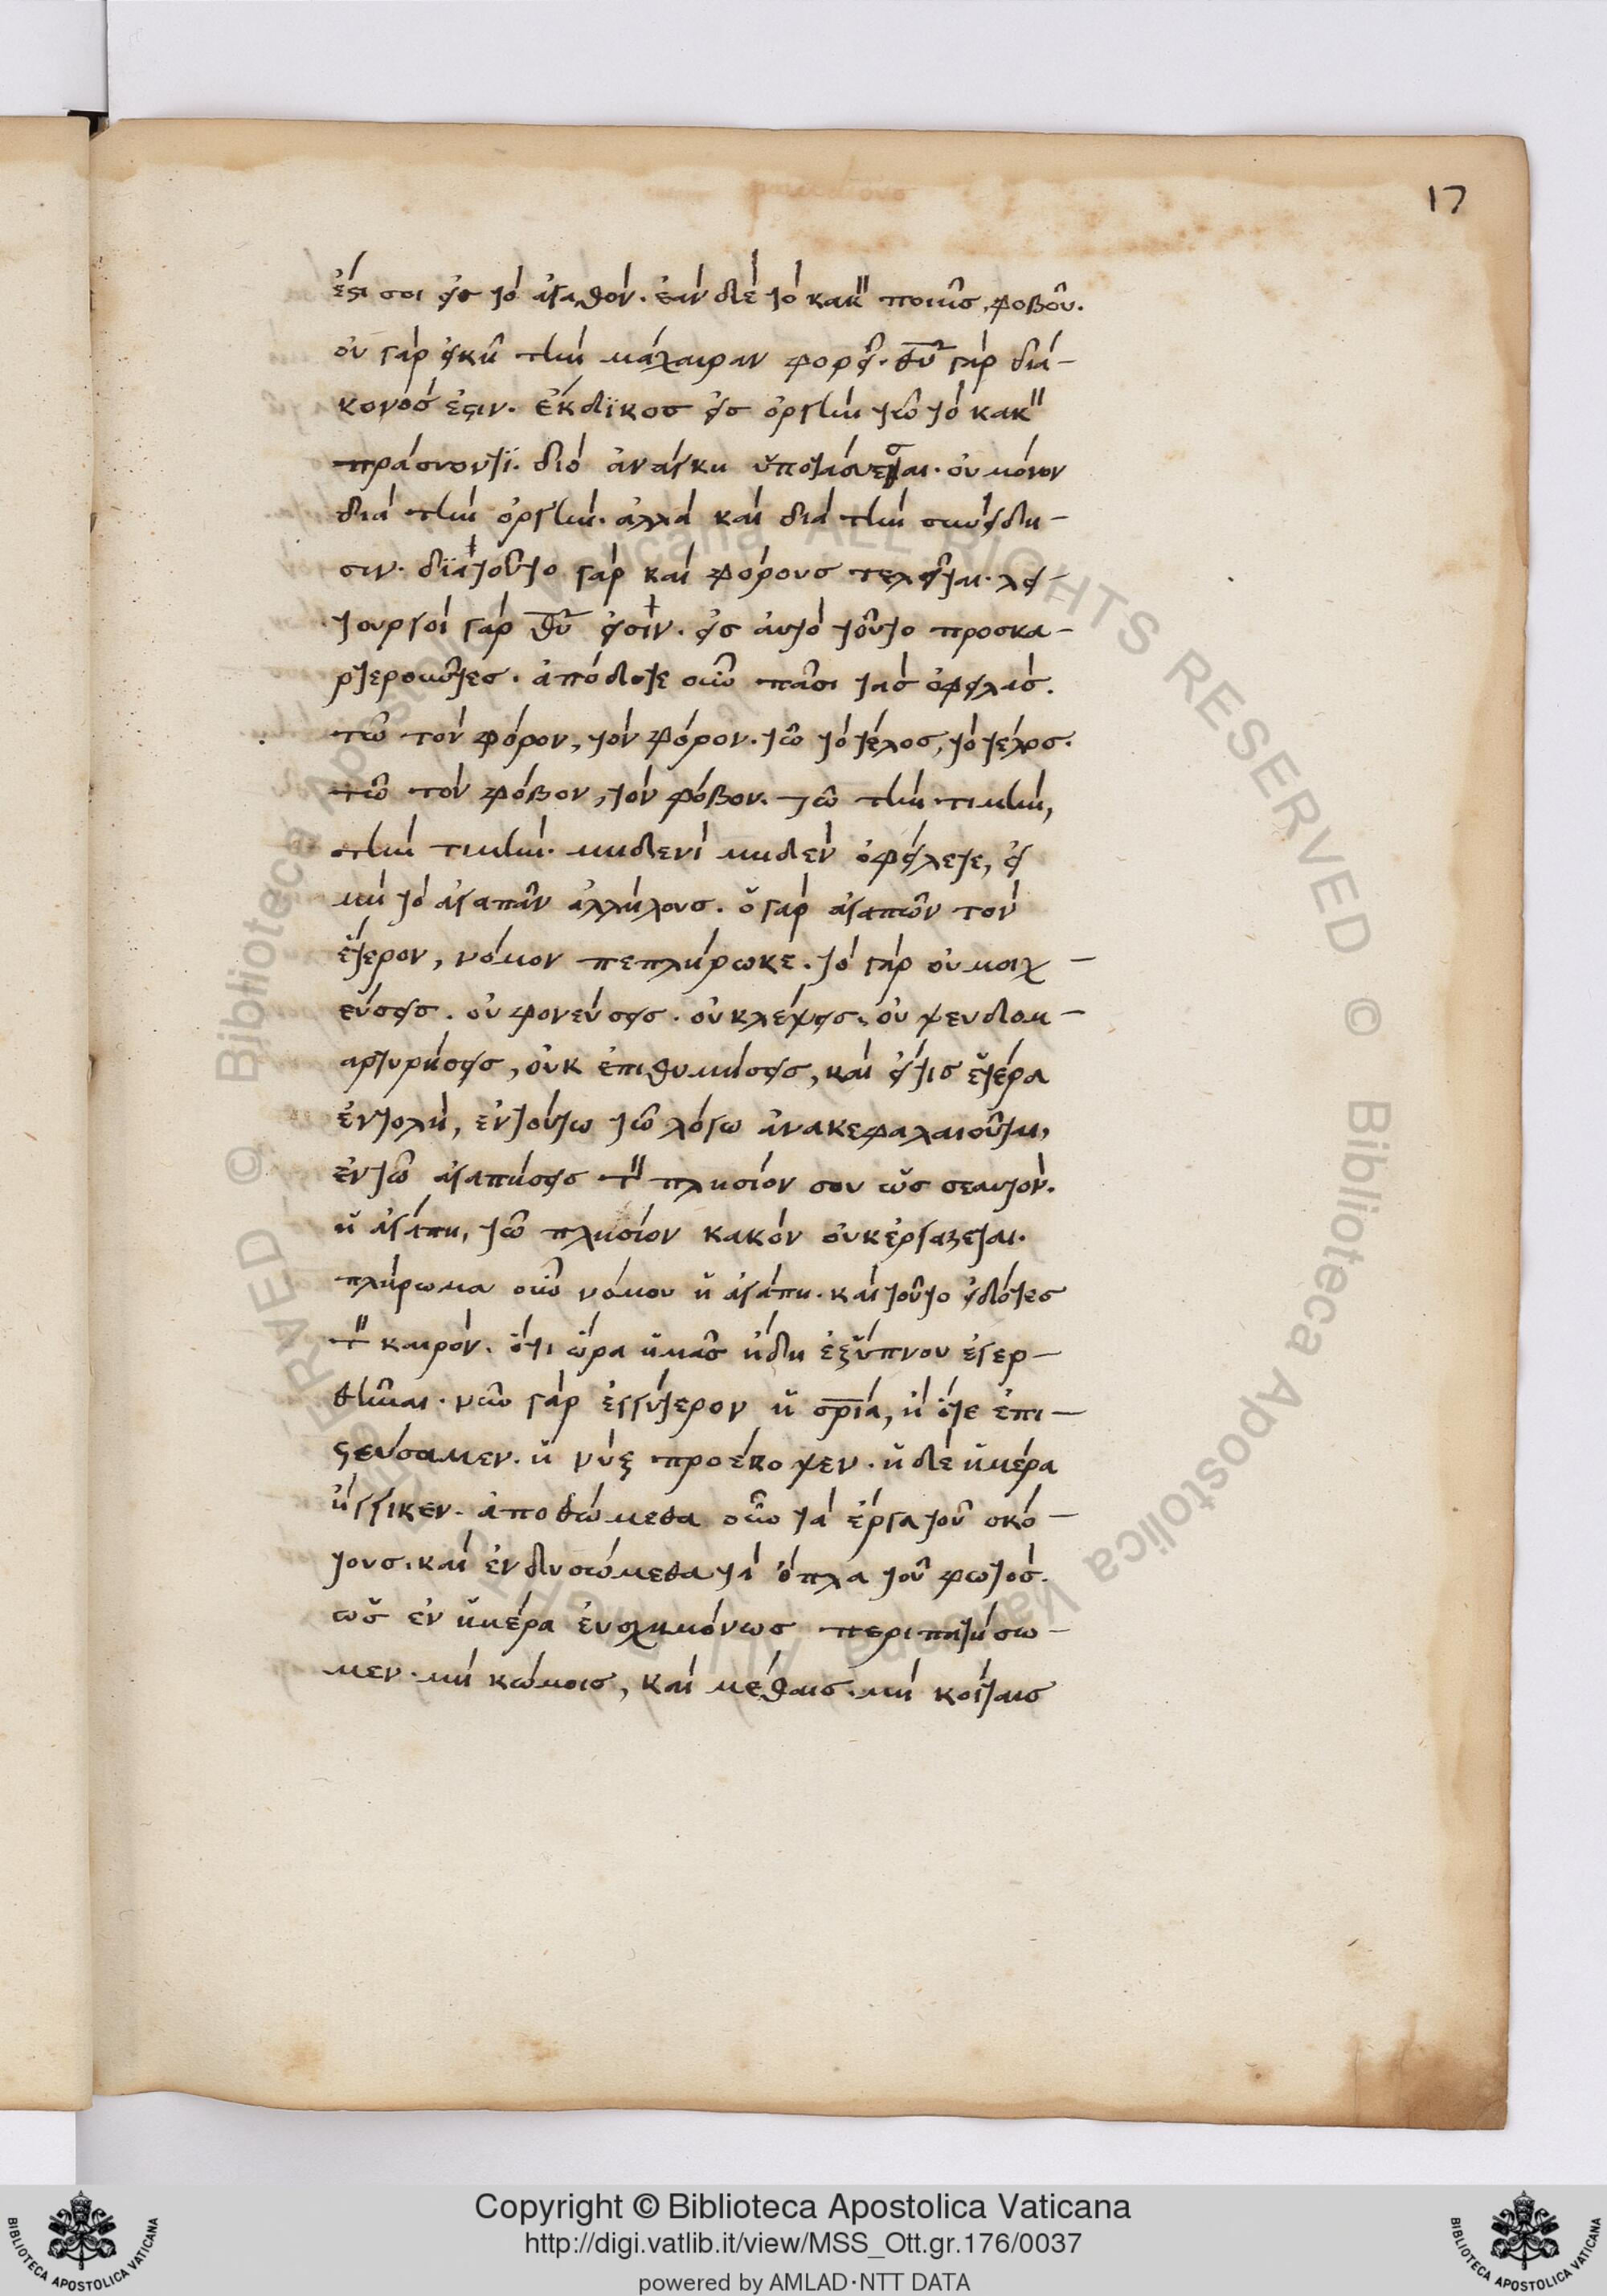 17
ἐστί σοι εἰς τὸ ἀγαθόν. ἐὰν δὲ τὸ κακ ποιῆς, φοβοῦ.
οὐ γὰρ εἰκῆ τὴν μάχαιραν φορεῖ. θῡ γὰρ διά-
κονός ἐστιν. ἔκδϊκος εἰς ὀργὴν τῶ τὸ κακ
πράσσοντϊ. διὸ ἀνάγκη ὑποτάσσεσθαι. οὐ μόνον
διὰ τὴν ὀργὴν. ἀλλὰ καὶ διὰ τὴν συνείδη-
σιν. δϊατοῦτο γὰρ καὶ φόρους τελεῖται. λει-
τουργοὶ γὰρ θῡ εἰσὶν. εἰς αὐτὸ τοῦτο προσκα-
ρτεροῦντες. ἀπόδοτε οὖν πᾶσι τὰς ὀφειλάς.
τῶ τὸν φόρον, τὸν φόρον. τῶ τὸ τέλος, τὸ τέλος.
τῶ τὸν φόβον, τὸν φόβον. τῶ τὴν τιμὴν,
τὴν τιμήν. μηδενὶ μηδὲν ὀφείλετε, εἰ
μὴ τὸ ἀγαπᾶν ἀλλήλους. ὁ γὰρ ἀγαπῶν τὸν
ἕτερον, νόμον πεπλήρωκε. τὸ γὰρ οὐ μοιχ-
εύσεις. οὐ φονεύσεις. οὐ κλέψεις. οὐ ψευδομ-
αρτυρήσεις, οὐκ ἐπιθυμήσεις, καὶ εἴτις ἑτέρα
ἐντολὴ, ἐν τούτω τῶ λόγω ἀνακεφαλαιοῦται,
ἐν τῶ ἀγαπήσεις τ πλησίον σου ὡς σεαυτόν.
ἡ ἀγάπη, τῶ πλησίον κακὸν οὐκ ἐργάζεται.
πλήρωμα οὖν νόμου ἡ ἀγάπη. καὶ τοῦτο εἰδότες
τ καιρόν. ὅτι ὥρα ἡμᾶς ἤδη ἐξὕπνου ἐγερ-
θῆναι. νῦν γὰρ ἐγγύτερον ἡ σρ̅ία, ἢ ὅτε ἐπι-
στεύσαμεν. ἡ νὺξ προέκοψεν. ἡ δὲ ἡμέρα
ἤγγικεν. ἀποθώμεθα οὖν τὰ ἔργα τοῦ σκό-
τους. καὶ ἐνδυσώμεθα τὰ ὅπλα τοῦ φωτός.
ὡς ἐν ἡμέρα εὐσχημόνως περιπατήσω-
μεν. μὴ κώμοις, καὶ μέθαις. μὴ κοίταις
Copyright © Biblioteca Apostolica Vaticana
http://digi.vatlib.it/view/MSS_Ott.gr.176/0037
powered by AMLAD·NTT DATA